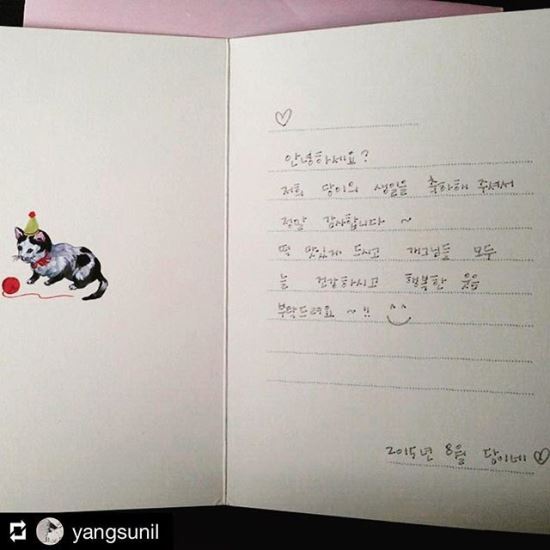 ♡
안녕하세요?
저희 담이의 생일을 축하해 주셔서
정말 감사합니다 ~
떡 맛있게 드시고 개그님들 모두
늘 건강하시고 행복한 웃음
부탁드려요 ~!!
2015년 8월 담이네 ♡
yangsunil